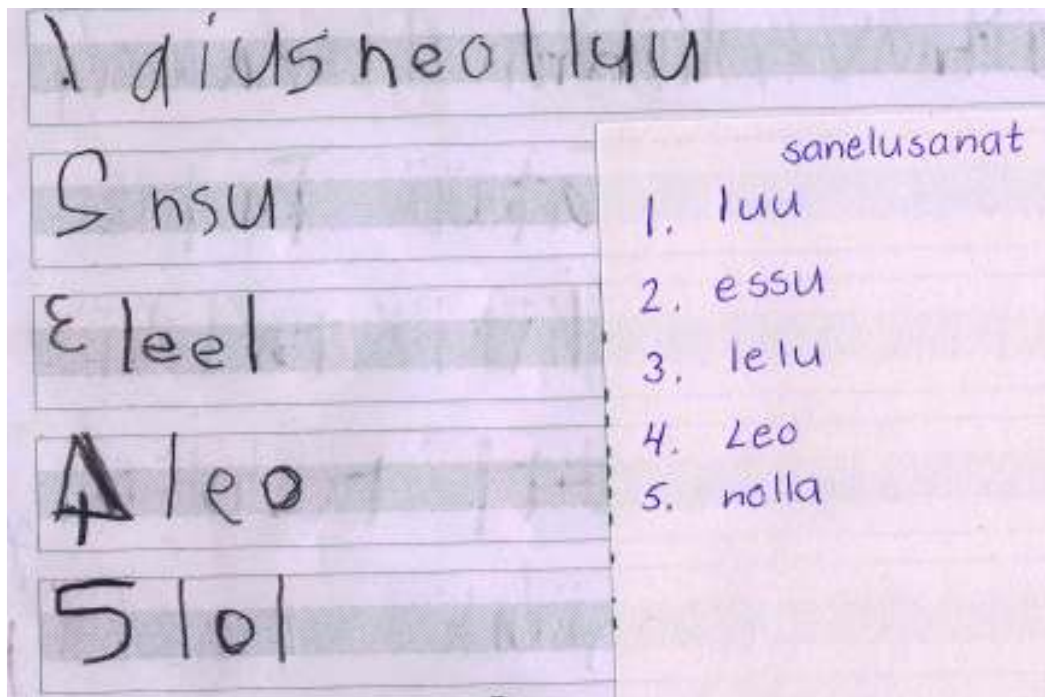 1 aiusneolluu
2 nsu
3 leel
4 leo
5 lol
sanelusanat
1. luu
2. essu
3. lelu
4. Leo
5. nolla